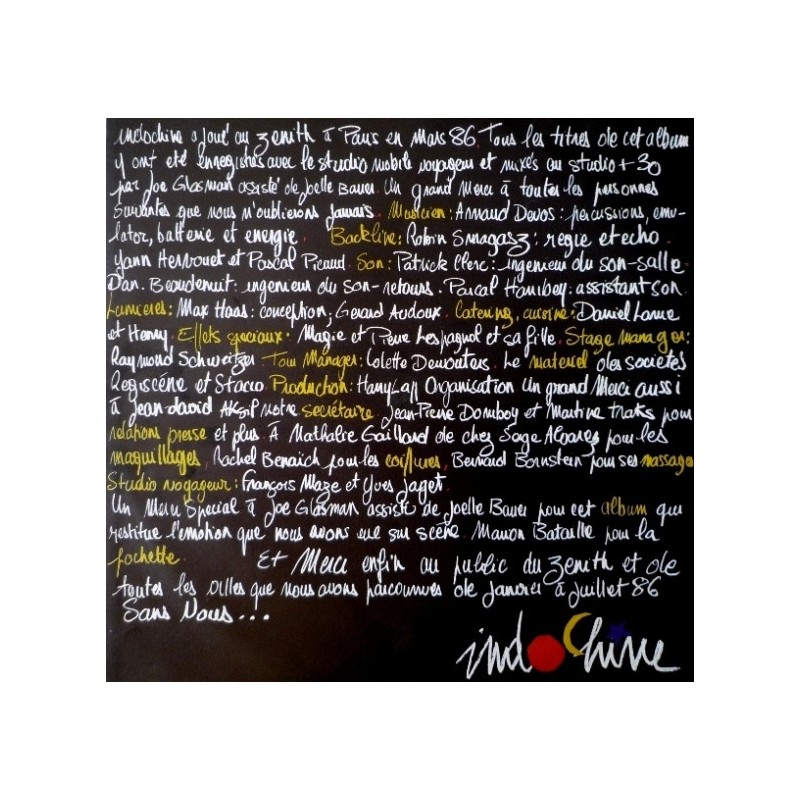 indochine a joué au zenith à Paris en Mars 86. Tous les titres de cet album
y ont eté enregistrés avec le studio mobile voyageur et mixés au studio + 30
par Joe Glasman assisté de Joelle Bauer. Un grand Merci à toutes les personnes
suivantes que nous n'oublierons jamais. Musicien: Arnaud Devos: percussions, emu-
lator, batterie et energie. Backline: Robin Smagasz: regie et echo.
Yann Hervouet et Pascal Picaud. Son: Patrick Clerc: ingenieur du son-salle.
Dan. Beaudenuit: ingenieur du son-retours. Pascal Hamboy: assistant son.
Lumieres: Max Haas: conception, Gerard Audoux. Catering, cuisine: Daniel Lame
et Henry. Effets speciaux: Magie et Pierre Lespagnol et sa fille. Stage manager:
Raymond Schweitzer Tour Manager: Colette Dewouters. Le materiel des societés
Regiscéne et Stacco Production: HarryLap Organisation Un grand Merci aussi
à Jean-david Aksil notre secrétaire Jean-Pierre Domboy et Martine traks pour
relations presse et plus. A Nathalie Gaillard de chez Serge Alvarez pour les
maquillages, Rachel Benaïch pour les coiffures, Bernard Bornstein pour ses massages
Studio voyageur: François Maze et Yves Jaget.
Un Merci Special à Joe Glasman assisté de Joelle Bauer pour cet album qui
restitue l'emotion que nous avons eue sur scène. Marion Bataille pour la
pochette. Et Merci enfin au public du zenith et de
toutes les villes que nous avons parcourues de janvier à juillet 86
Sans Nous...
indochine